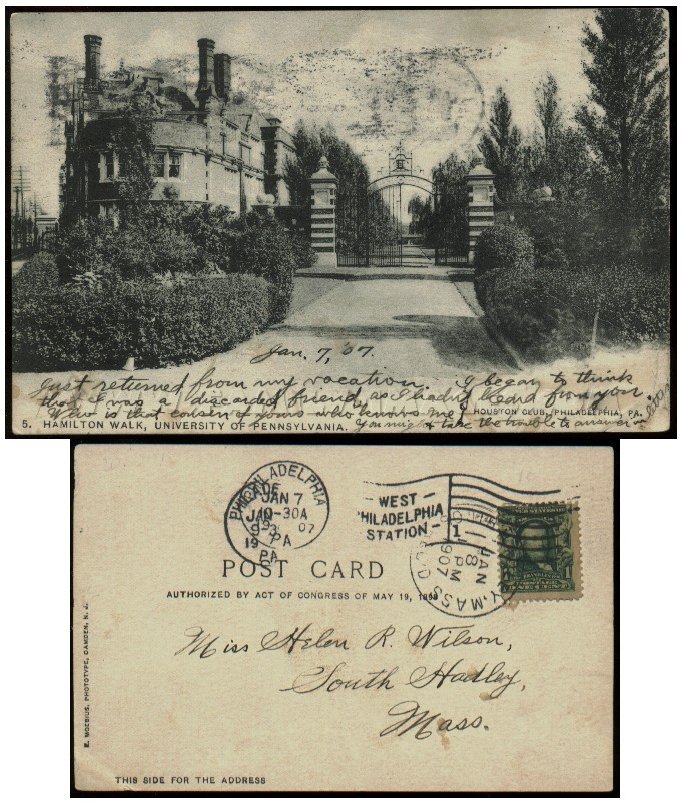 Jan. 7, '07.
Just returned from my vacation. I began to think
that I was a discarded friend, as I hadn't heard from you.
Who is that cousin of yours who knows me?
© HOUSTON CLUB, PHILADELPHIA, PA.
5. HAMILTON WALK, UNIVERSITY OF PENNSYLVANIA.
You might take the trouble to answer
PHILADELPHIA
JAN 7
-30A
07
PA
WEST
PHILADELPHIA
STATION
1
JAN
8
PM
1907
MASS
POST CARD
AUTHORIZED BY ACT OF CONGRESS OF MAY 19, 1898
Miss Helen R. Wilson,
South Hadley,
Mass.
E. MOEBIUS, PHOTOTYPE, CAMDEN, N. J.
THIS SIDE FOR THE ADDRESS